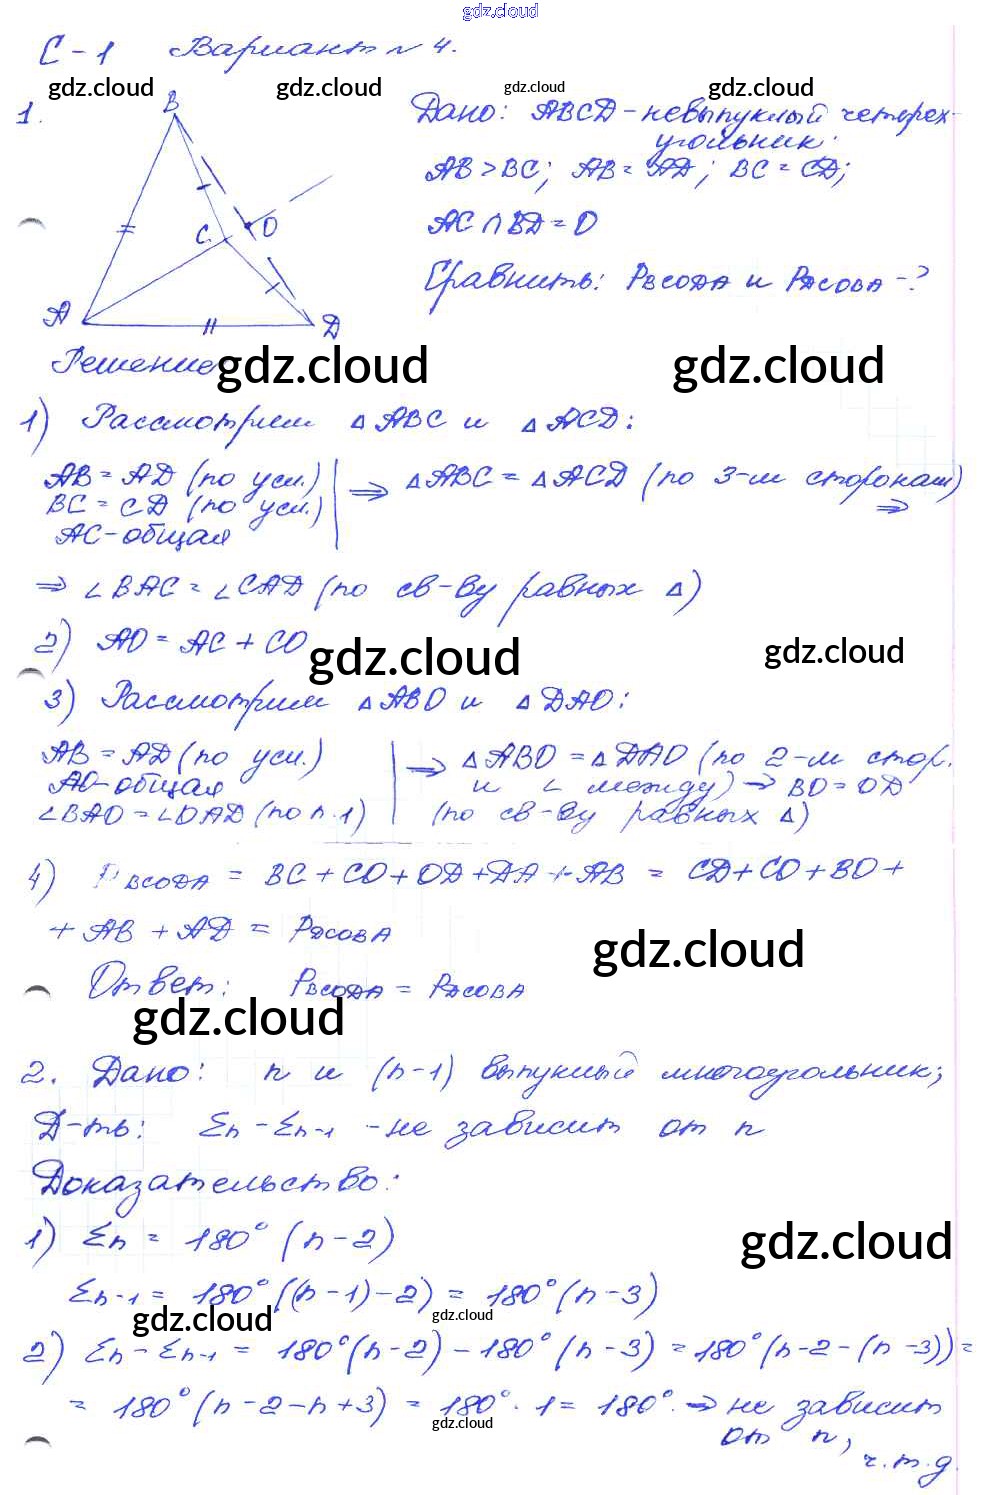 gdz.cloud
С-1 Вариант №4.
gdz.cloud gdz.cloud gdz.cloud gdz.cloud
1.
B
C
O
A
D
Дано: ABCD - невыпуклый четырех-
угольник.
AB > BC; AB = AD; BC = CD;
AC ∩ BD = O
Сравнить: PBCODA и PDCOBA -?
Решение
gdz.cloud gdz.cloud
1) Рассмотрим △ABC и △ACD:
AB = AD (по усл.)
BC = CD (по усл.)
AC - общая
⇒ △ABC = △ACD (по 3-м сторонам)
⇒
⇒ ∠BAC = ∠CAD (по св-ву равных △)
2) AO = AC + CO
gdz.cloud gdz.cloud
3) Рассмотрим △ABO и △DAO:
AB = AD (по усл.)
AO - общая
∠BAO = ∠OAD (по п.1)
⇒ △ABO = △DAO (по 2-м стор.
и ∠ между) ⇒ BO = OD
(по св-ву равных △)
4) PBCODA = BC + CO + OD + DA + AB = CD + CO + BO +
+ AB + AD = PDCOBA
gdz.cloud
Ответ: PBCODA = PDCOBA
gdz.cloud
2. Дано: n и (n-1) выпуклый многоугольник;
Д-ть: Σn - Σn-1 - не зависит от n
Доказательство:
1) Σn = 180° (n-2)
gdz.cloud
Σn-1 = 180° ((n-1)-2) = 180° (n-3)
gdz.cloud gdz.cloud
2) Σn - Σn-1 = 180° (n-2) - 180° (n-3) = 180° (n-2-(n-3)) =
= 180° (n-2-n+3) = 180° · 1 = 180°. ⇒ не зависит
gdz.cloud
от n,
ч.т.д.